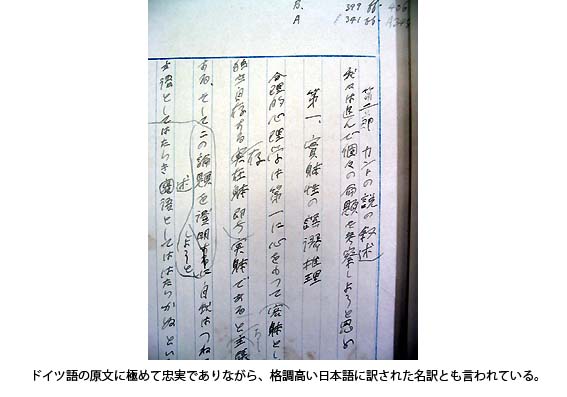 B. 399 ff - 406
A 341 ff - A348
カントの説の叙述
我々は進んで個々の命題を考察しようと思ふ
第一、實體性の誤謬推理
合理的心理学は第一に心をもって実体とし
存
自存する実在体即ち実体であると主張
する、そしてこの論題を證明 に自我はつね
しようと
述
主語としてはたらき 語としてははたらかぬとい
ドイツ語の原文に極めて忠実でありながら、格調高い日本語に訳された名訳とも言われている。